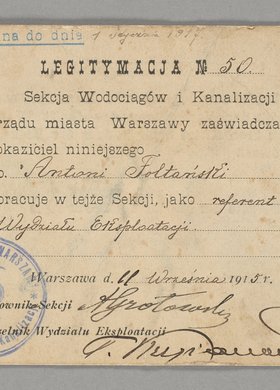 na do dnia 1 Stycznia 1917.
LEGITYMACJA № 50.
Sekcja Wodociągów i Kanalizacji
rządu miasta Warszawy zaświadcza
okaziciel niniejszego
p. Antoni Foltański
pracuje w tejże Sekcji, jako referent
Wydziału Eksploatacji
Warszawa d. 11 Września 1915 r.
ownik Sekcji AGrotowski
elnik Wydziału Eksploatacji